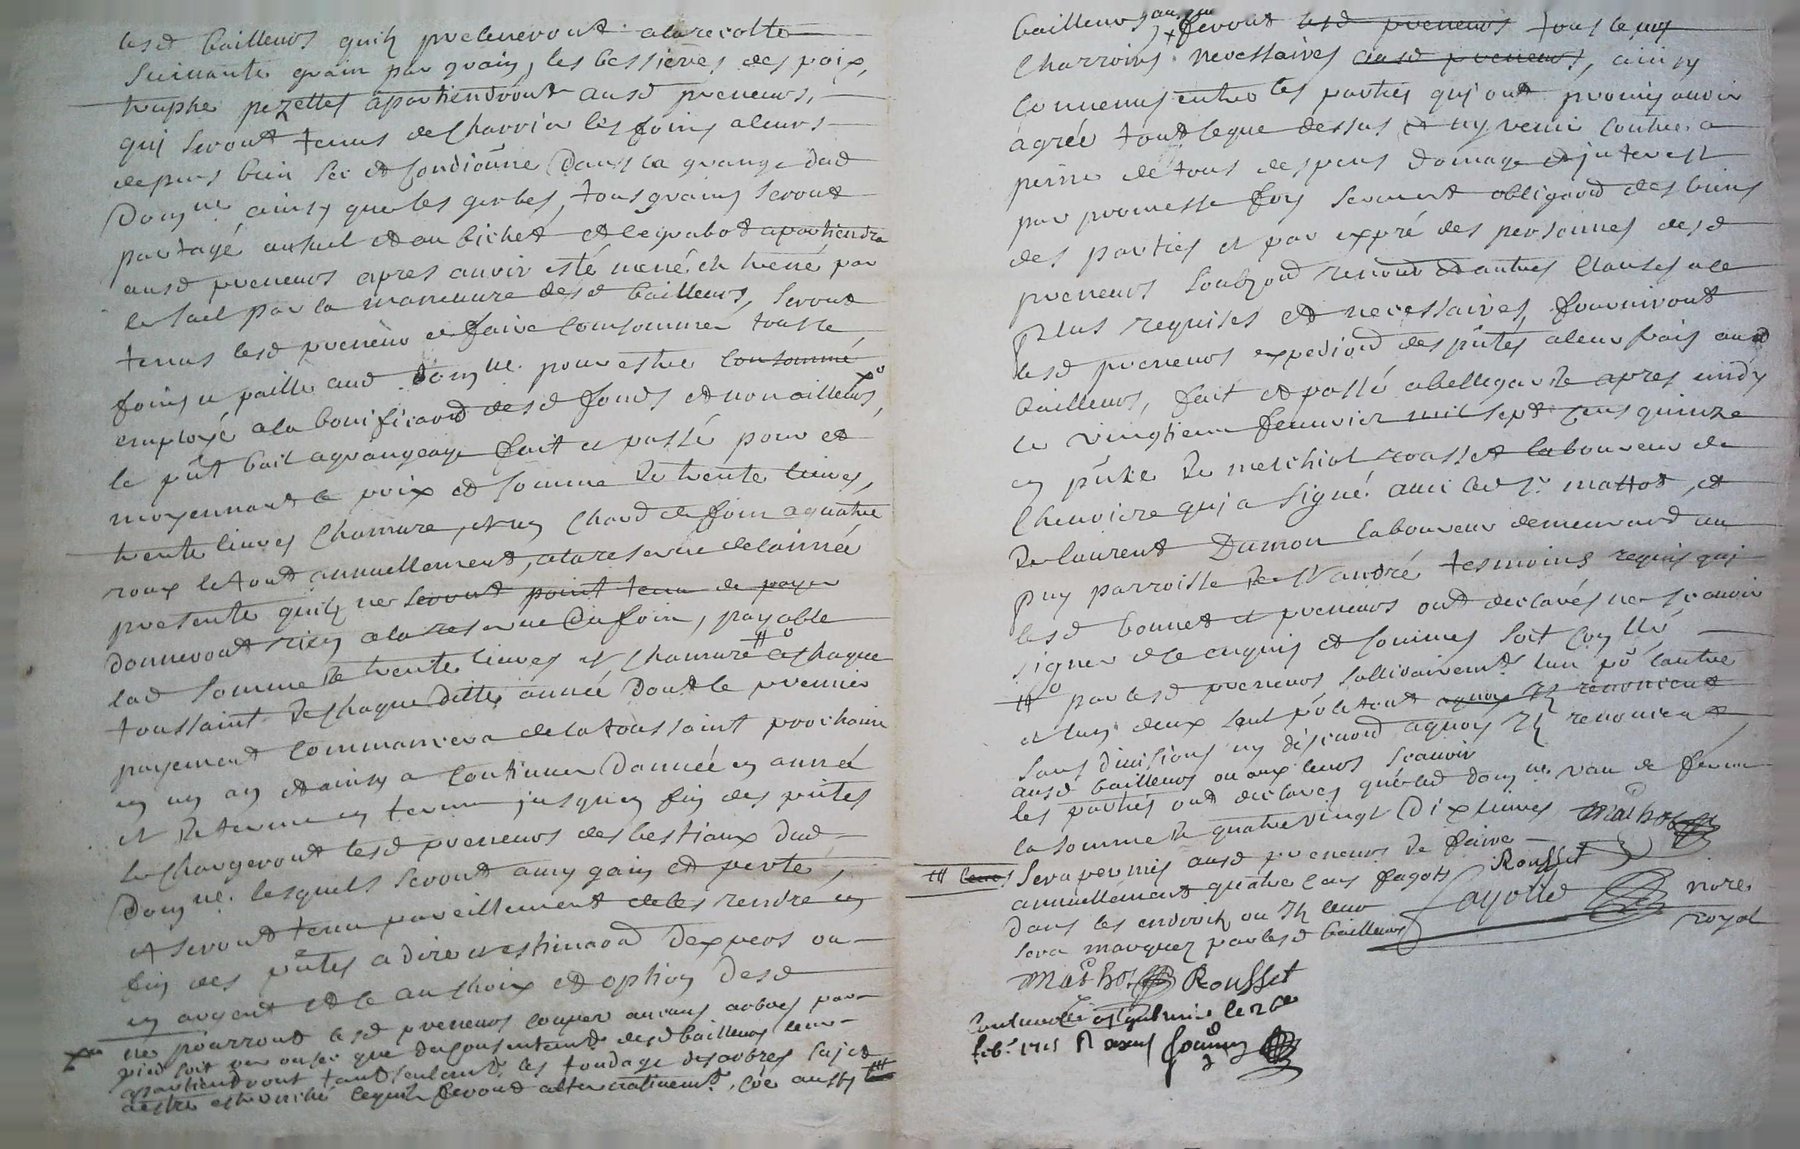 lesd bailleurs quilz preleveront a la recolte
suivante grain par grain, les bessieres des poix,
truphe pezettes apartiendront ausd preneurs,
quj seront tenus de charrier les foins a leurs
depens bien sec et condioñne dans la grange dud
domne ainsy que les gerbes, tous grains seront
partagé au suel et au bichet et le grabot apartiendra
ausd preneurs apres avoir esté mené et
le suel par la manœuvre desd bailleurs, seront
tenus lesd preneurs de faire consommer tous le
foins et paille aud domne. pour estre consommé
employé a la bonificaond desd fonds et non ailleurs,
le pñt bail a grangeage fait et passé pour et
moyennant le prix et somme de trente livres,
trente livres chanvre, et un chard de foin a quatre
roux le tout annuellement, a la reserve de lannée
presente quilz ne seront point tenu de payer
donneront rien a la reserve du foin, payable
lad somme de trente livres et chanvre a chaque
toussaint de chaque ditte année dont le premier
payement commancera de la toussaint prochaine
en un an et ainsy a continuer dannée en année
et de terme en terme jusquen fin des pñtes
se chargeront lesd preneurs des bestiaux dud
domne. lesquels seront a my gain et perte,
et seront tenu pareillement de les rendre en
fin des pñtes a dire et estimaond dexpers ou
en argent et le au choix et option desd
ne pourront lesd preneurs couper aucuns arbres par
pied soit ou autre que du consentemt desd bailleurs leur
apartiendront tant seulemt les tondage des arbres sujet
destre esbranché lequel feront alternativemt, coe aussy
bailleurs feront lesd preneurs tous les
charroirs necessaires ausd preneurs, ainsy
convenus entre les parties quj ont promis avoir
agrée tout ce que dessus et ny venir contre a
peine de tous despens domage et jnterest
par promesse foy serment obligaond des biens
des parties et par expré des personnes desd
preneurs soubzond renond et autres clauses a ce
plus requises et necessaires, fourniront
lesd preneurs expediond des pñtes a leur frais ausd
bailleurs, fait et passé a bellegarde apres midy
le vingtieme fevrier mil sept cens quinze
en pñce de melchiol rousset laboureur de
chevriere quj a signé avec led sr mattot, et
de laurent Damon laboureur demeurand au
puy parroisse de st andré tesmoins requis quj
lesd bonnet et preneurs ont declarés ne scavoir
signer de ce enquis et sommes soit conllé
par lesd preneurs sollidairement lun pr lautre
et lun deux seul pr le tout aquoy ilz renoncent
sans division ny discuond aquoy ilz renoncent,
ausd bailleurs ou aux leurs scavoir
les parties ont declarés que led domne. vaut de ferme
la somme de quatre vingt dix livres Mathot
sera permis ausd preneurs de faire Rousset
annuellement quatre cans fagots Fayolle nore
dans les endroit ou ilz leur royal
sera marquez par lesd bailleurs
Mathot Rousset
Controllé le 26e
feb. 1715